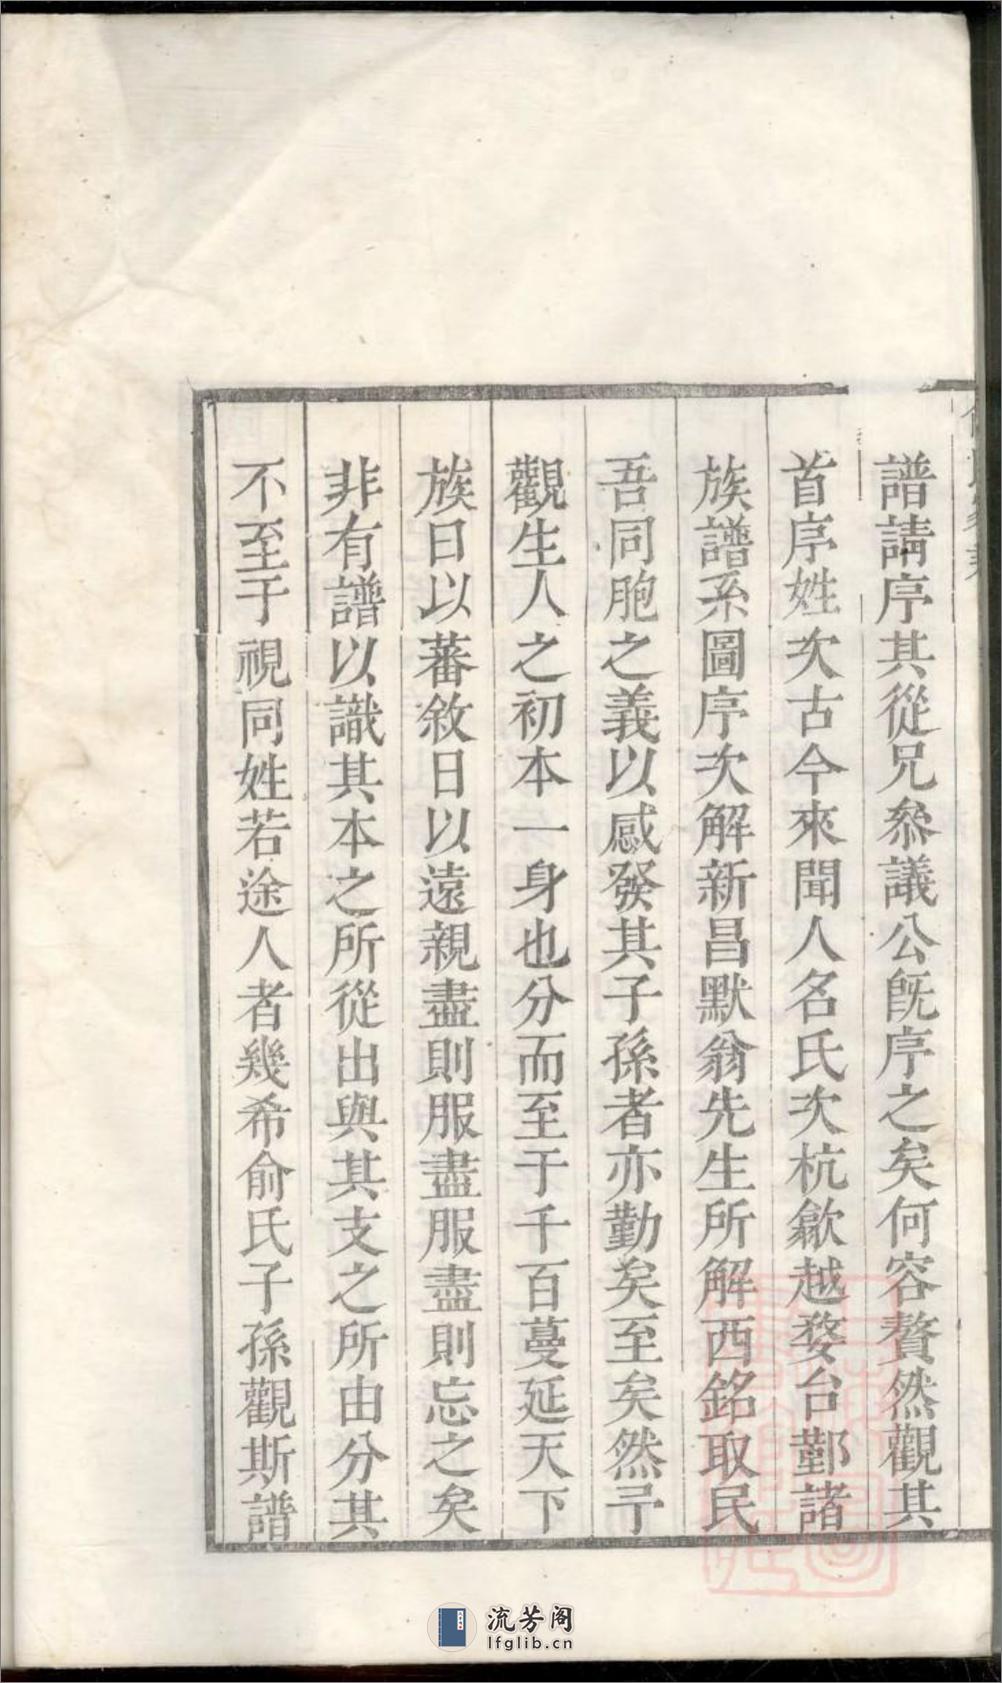 譜請序其從兄叅議公旣序之矣何容贅然觀其
首序姓次古今來聞人名氏次杭歙越婺台鄞諸
族譜系圖序次解新昌默翁先生所解西銘取民
吾同胞之義以感發其子孫者亦勤矣至矣然予
觀生人之初本一身也分而至于千百蔓延天下
族日以蕃敘日以遠親盡則服盡服盡則忘之矣
非有譜以識其本之所從出與其支之所由分其
不至于視同姓若途人者幾希俞氏子孫觀斯譜
流芳阁
lfglib.cn